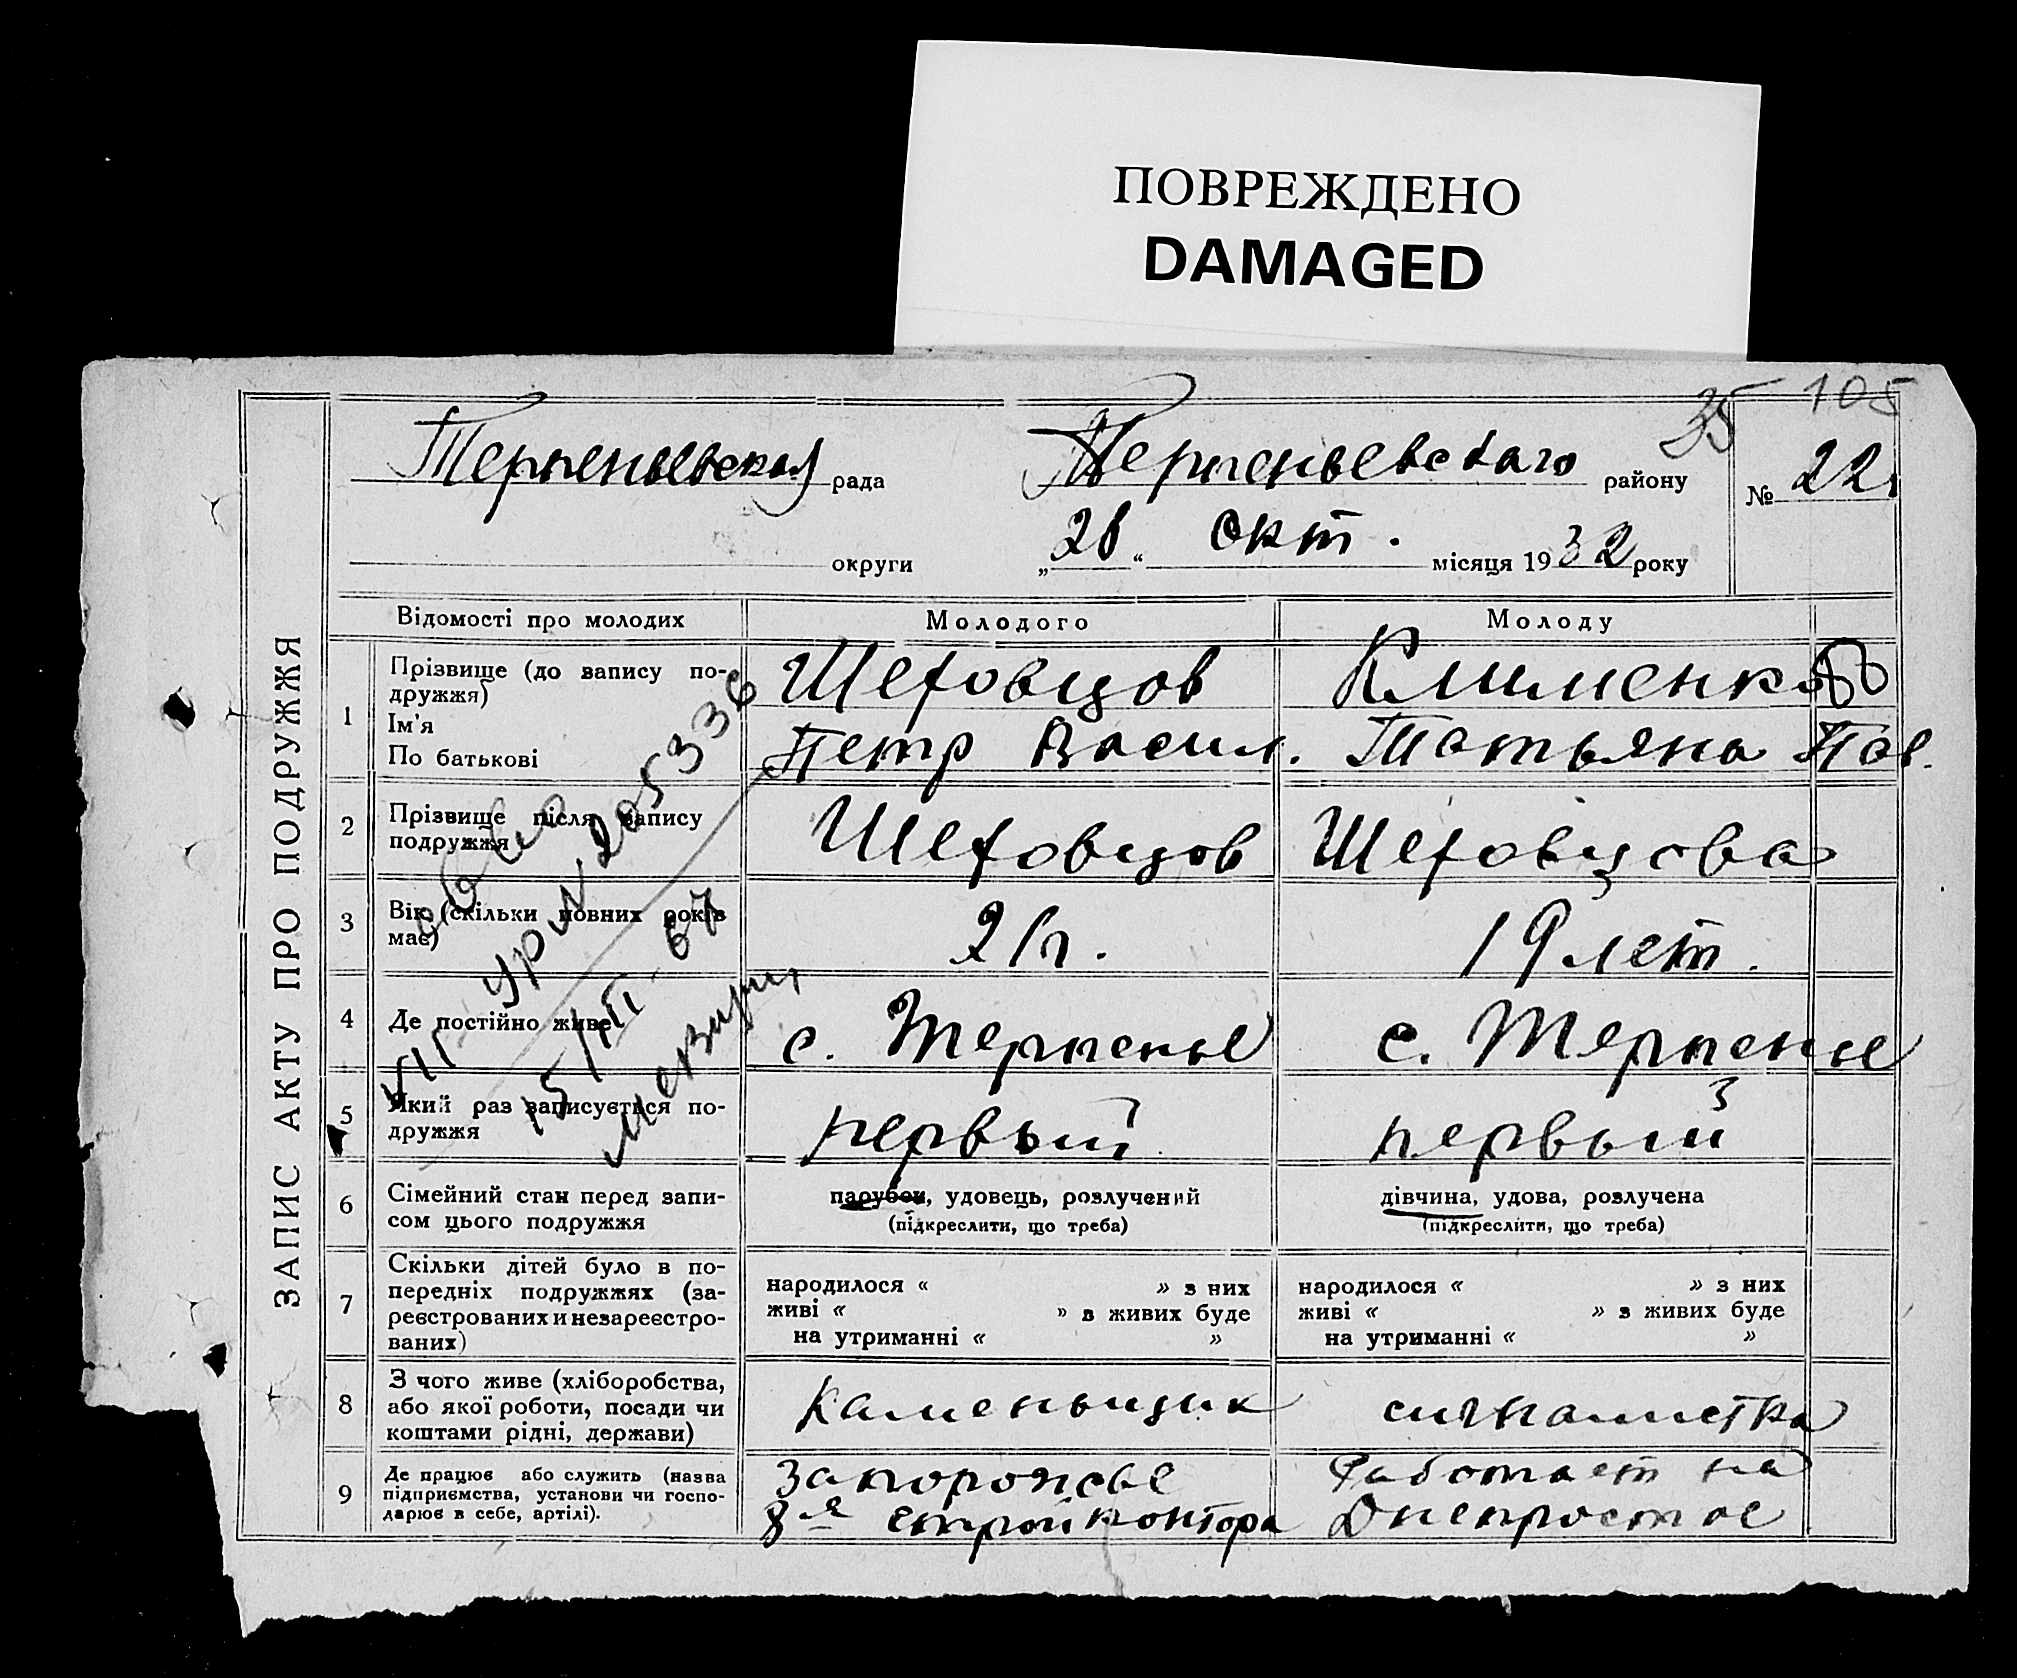 ПОВРЕЖДЕНО
DAMAGED
35 105
Терпеньевская рада Терпеньевского району № 22
округи „28“ окт. місяця 1932 року
ЗАПИС АКТУ ПРО ПОДРУЖЖЯ
Відомості про молодих Молодого Молоду
1 Прізвище (до запису по-
дружжя)
Ім'я
По батькові
Шеховцов Клименко
Петр Васил. Татьяна Пав.
2 Прізвище після запису
подружжя
Шеховцов Шеховцова
3 Вік (скільки повних років
має)
21 г. 19 лет.
4 Де постійно живе
с. Терпенье с. Терпенье
5 Який раз записується по-
дружжя
первый первый
6 Сімейний стан перед запи-
сом цього подружжя
парубок, удовець, розлучений
(підкреслити, що треба)
дівчина, удова, розлучена
(підкреслити, що треба)
7 Скільки дітей було в по-
передніх подружжях (за-
реєстрованих и незареєстро-
ваних)
народилося « » з них
живі « » в живих буде
на утриманні « »
народилося « » з них
живі « » з живих буде
на утриманні « »
8 З чого живе (хліборобства,
або якої роботи, посади чи
коштами рідні, держави)
каменьщик сигналистка
9 Де працює або служить (назва
підприємства, установи чи госпо-
дарює в себе, артілі).
Запорожье
8-я стройконтора
Работает на
Днепрострое
№ 205336
15/III-67